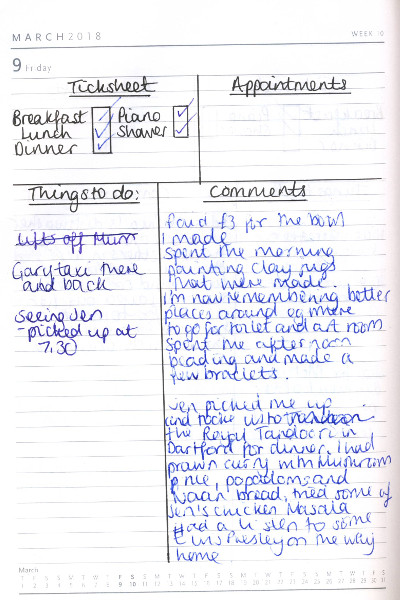 MARCH 2018
WEEK 10
9 Friday
Ticksheet
Breakfast
Lunch
Dinner
Piano
Shower
Appointments
Things to do:
Lifts off Mum
Gary taxi there
and back
seeing Jen
- picked up at
7.30
Comments
Paid £3 for the bowl
I made
Spent the morning
painting clay mugs
that were made.
I'm now remembering better
places around eg where
to go for toilet and art room
Spent the afternoon
beading and made a
few braclets.
Jen picked me up
and took us to
the Royal Tandoori in
Dartford for dinner. I had
prawn curry with Mushroom
rice, popadoms and
Naan bread, tried some of
Jen's chicken Masala
Had a listen to some
Elvis Presley on the way
home
March
T F S S M T W T F S S M T W T F S S M T W T F S S M T W T F S
1 2 3 4 5 6 7 8 9 10 11 12 13 14 15 16 17 18 19 20 21 22 23 24 25 26 27 28 29 30 31